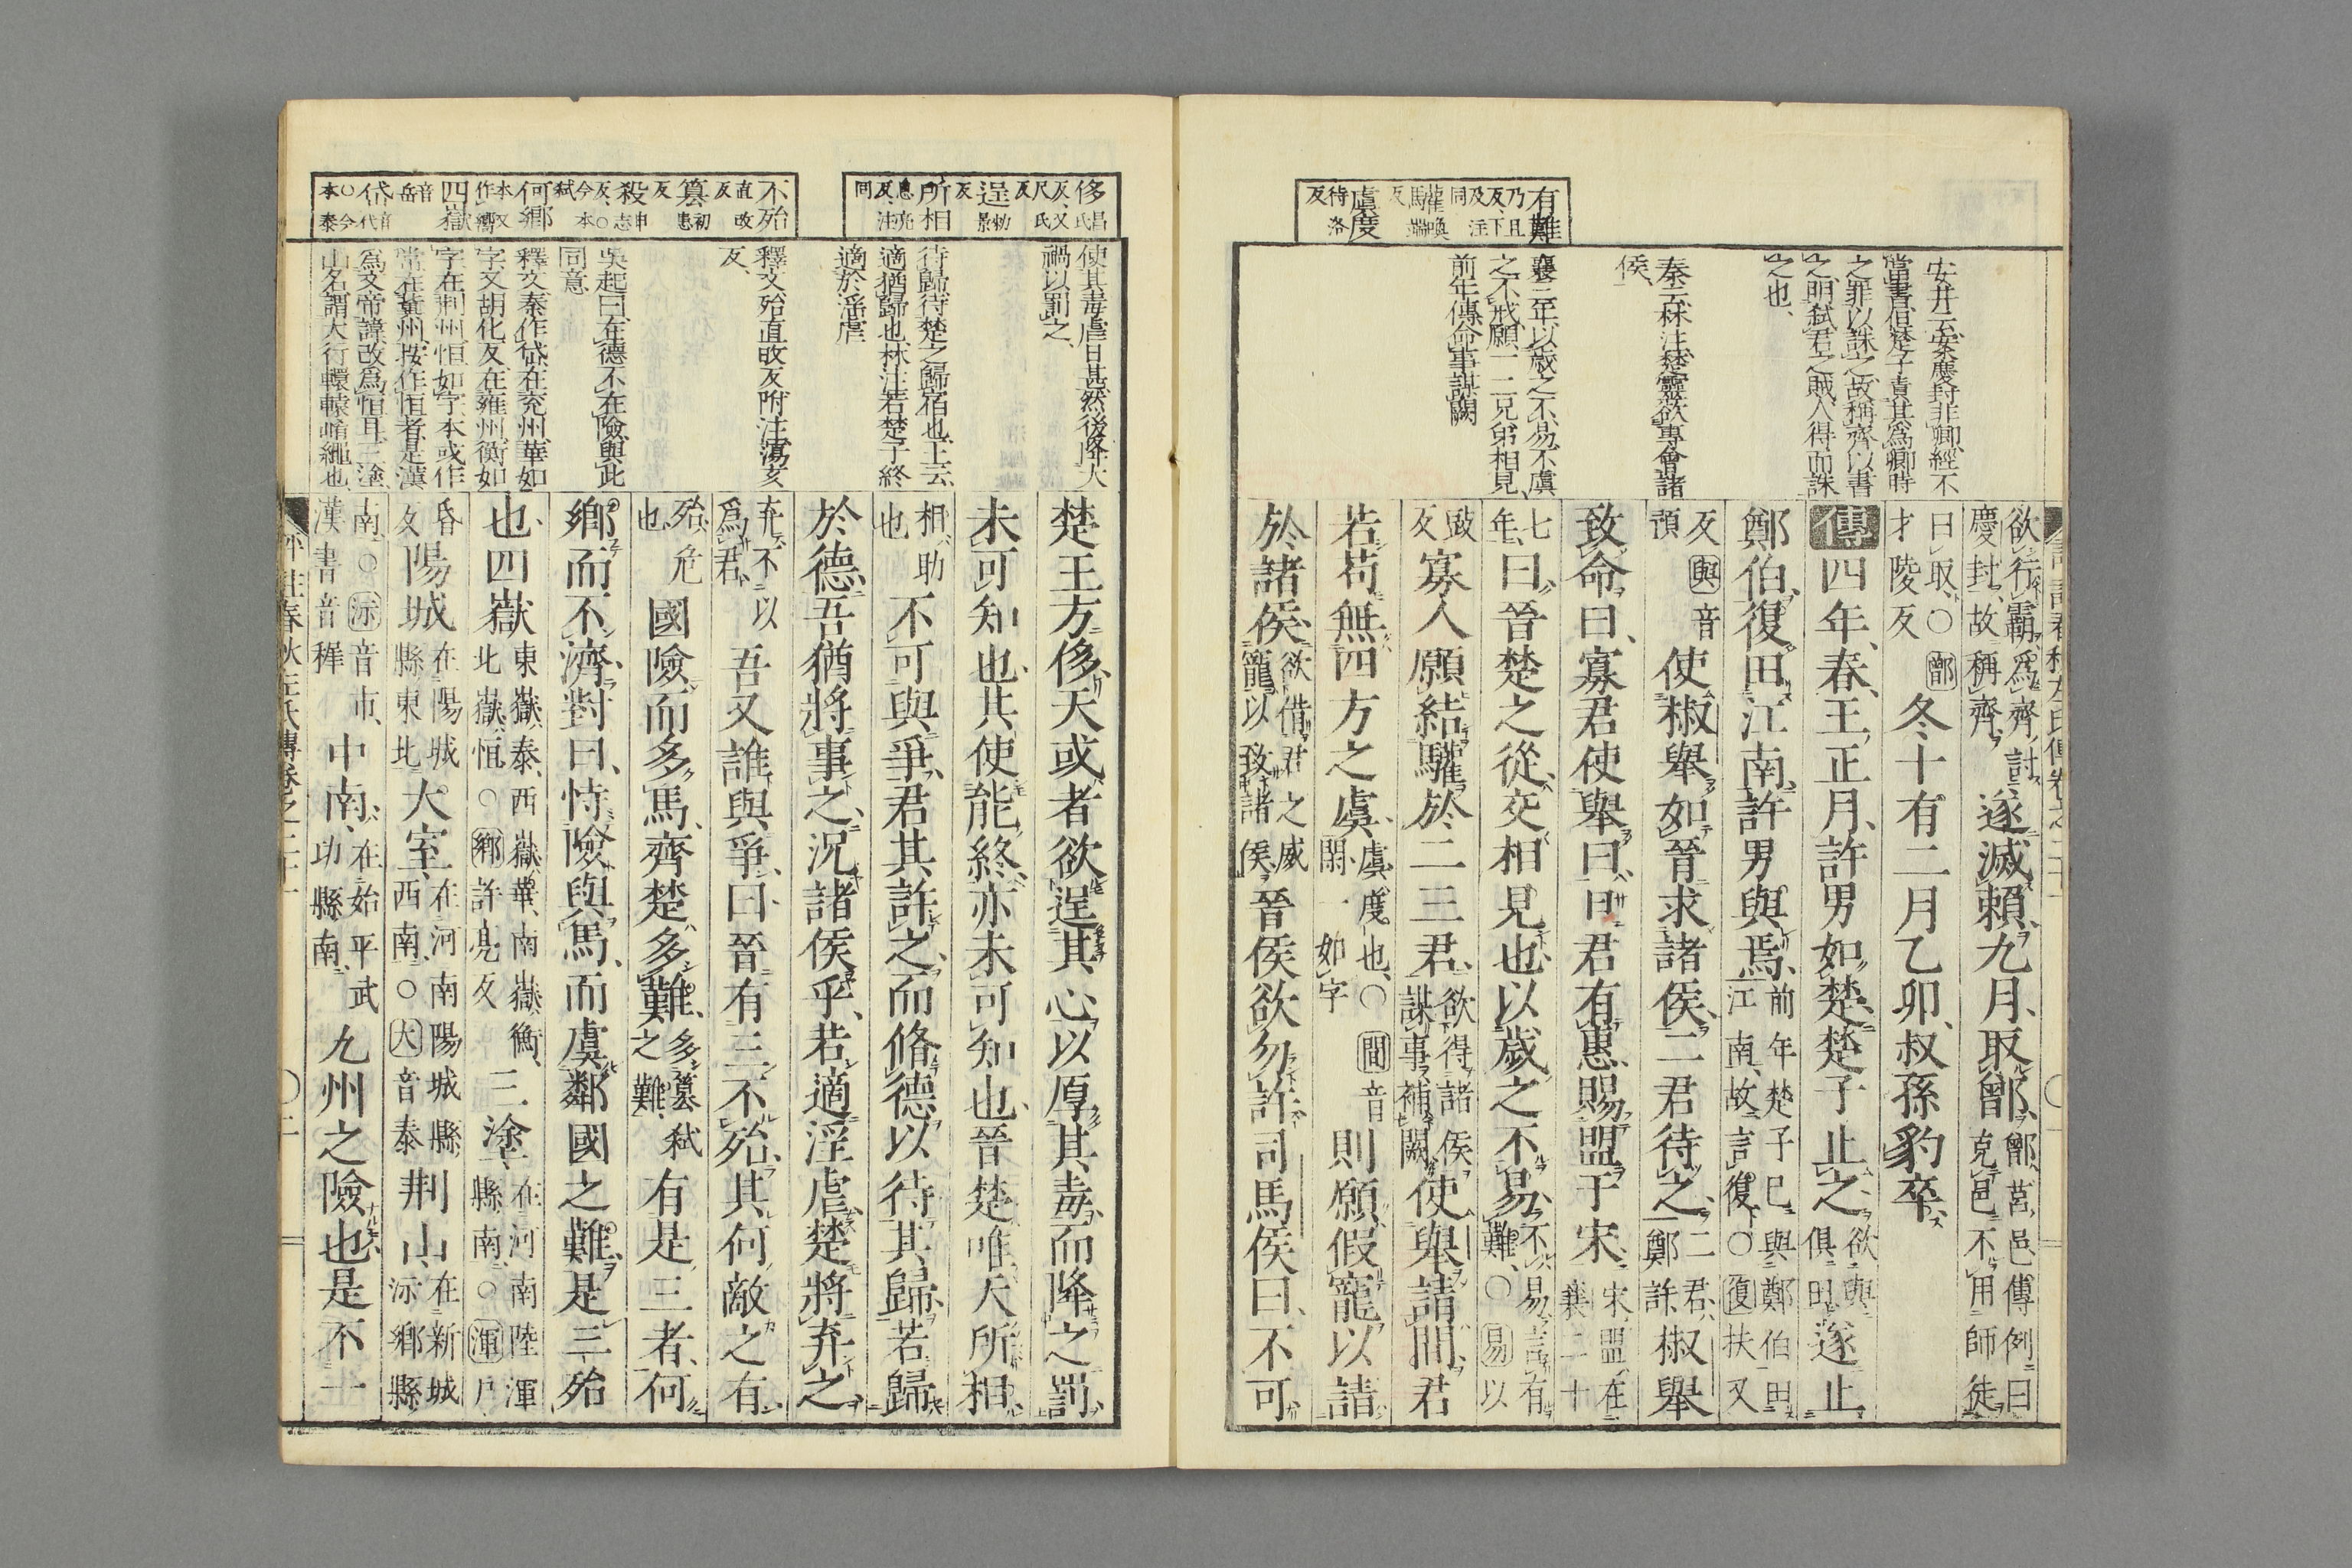 有難
乃且
反下
及注
同
讙喚
馬端
反
虞度
待洛
反
安井云案慶封非卿經不
當書但楚子責其爲卿時
之罪以誅之故稱齊以書
之明弑君之賊人得而誅
之也
秦云林注楚靈欲專會諸
侯
襄三年以歲之不易不虞
之不戒願一二兄弟相見
前年傳命事謀闕
欲行霸爲齊討
慶封故稱齊
遂滅賴九月取鄫
鄫莒邑傳例曰
克邑不用師徒
曰取○鄫
才陵反
冬十有二月乙卯叔孫豹卒
傳四年春王正月許男如楚楚子止之
欲與
俱田
遂止
鄭伯復田江南許男與焉
前年楚子已與鄭伯田
江南故言復○復扶又
反與音
預
使椒舉如晉求諸侯二君待之
二君
鄭許
椒舉
致命曰寡君使舉曰曰君有惠賜盟于宋
宋盟在
襄二十
七
年
曰晉楚之從交相見也以歲之不易
不易言有
難○易以
豉
反
寡人願結驩於二三君
欲得諸侯
謀事補闕
使舉請間君
若苟無四方之虞
虞度也○間音
閑一如字
則願假寵以請
於諸侯
欲借君之威
寵以致諸侯
晉侯欲勿許司馬侯曰不可
侈昌氏
反又
尺氏
反
逞勑景
反
所相
息亮
反注
同
不殆
直改
反
篡初患
反
殺申志
反○
今本
弑
何鄉
本又
作嚮
四嶽
音岳
岱音代
○今
本泰
使其毒虐日甚然後降大
禍以罰之
待歸待楚之歸宿也上云
適猶歸也林注若楚子終
適於淫虐
釋文殆直改反附注蕩亥
反
吳起曰在德不在險與此
同意
釋文泰作岱在兖州華如
字又胡化反在雍州衡如
字在荆州恒如字本或作
常在冀州按作恒者是漢
爲文帝諱改爲恒耳三塗
山名謂大行轘轅崤繩也
楚王方侈天或者欲逞其心以厚其毒而降之罰
未可知也其使能終亦未可知也晉楚唯天所相
相助
也
不可與爭君其許之而脩德以待其歸若歸
於德吾猶將事之況諸侯乎若適淫虐楚將弃之
弃不以
爲君
吾又誰與爭曰晉有三不殆其何敵之有
殆危
也
國險而多馬齊楚多難
多篡弑
之難
有是三者何
鄉而不濟對曰恃險與馬而虞鄰國之難是三殆
也四嶽
東嶽泰西嶽華南嶽衡
北嶽恒○鄉許亮反
三塗
在河南陸渾
縣南○渾戶
昏
反
陽城
在陽城
縣東北
大室
在河南陽城縣
西南○大音泰
荆山
在新城
沶鄉縣
南○沶音市
漢書音稺
中南
在始平武
功縣南
九州之險也是不一